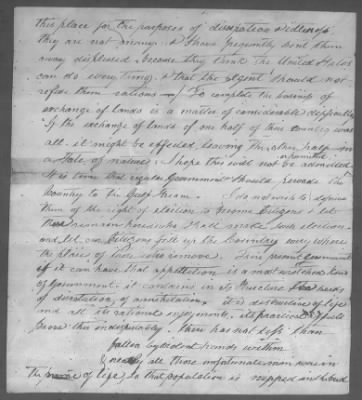 this place for the purposes of dissipation & idleness
they are not many. & I have frequently sent them
away displeased, because they think the United States
can do every thing, & that the agent should not
refuse them rations — To complete the business of
exchange of lands is a matter of considerable difficulty
If the exchange of lands of one half of their country was
all. it might be effected, leaving the other half in
a state of nature; I hope this will not be admitted
It is time that regular Government should pervade the
Country to the Gulf Stream. I do not wish to deprive
them of the right of election to become Citizens; let
them remain here who shall make such election
and let our Citizens fill up the Country every where
the places of those who remove. Their present government
if it can have that appellation is a most wretched kind
of Government. it contains in its structure the seeds
of dissolution, of annihilation. it is destructive of life
and all its rational enjoyments. its practical effects
prove this indisputably. There has not less than
fallen by violent hands within
nearly all those unfortunate men were in
the prime of life, so that population is nipped in the bud